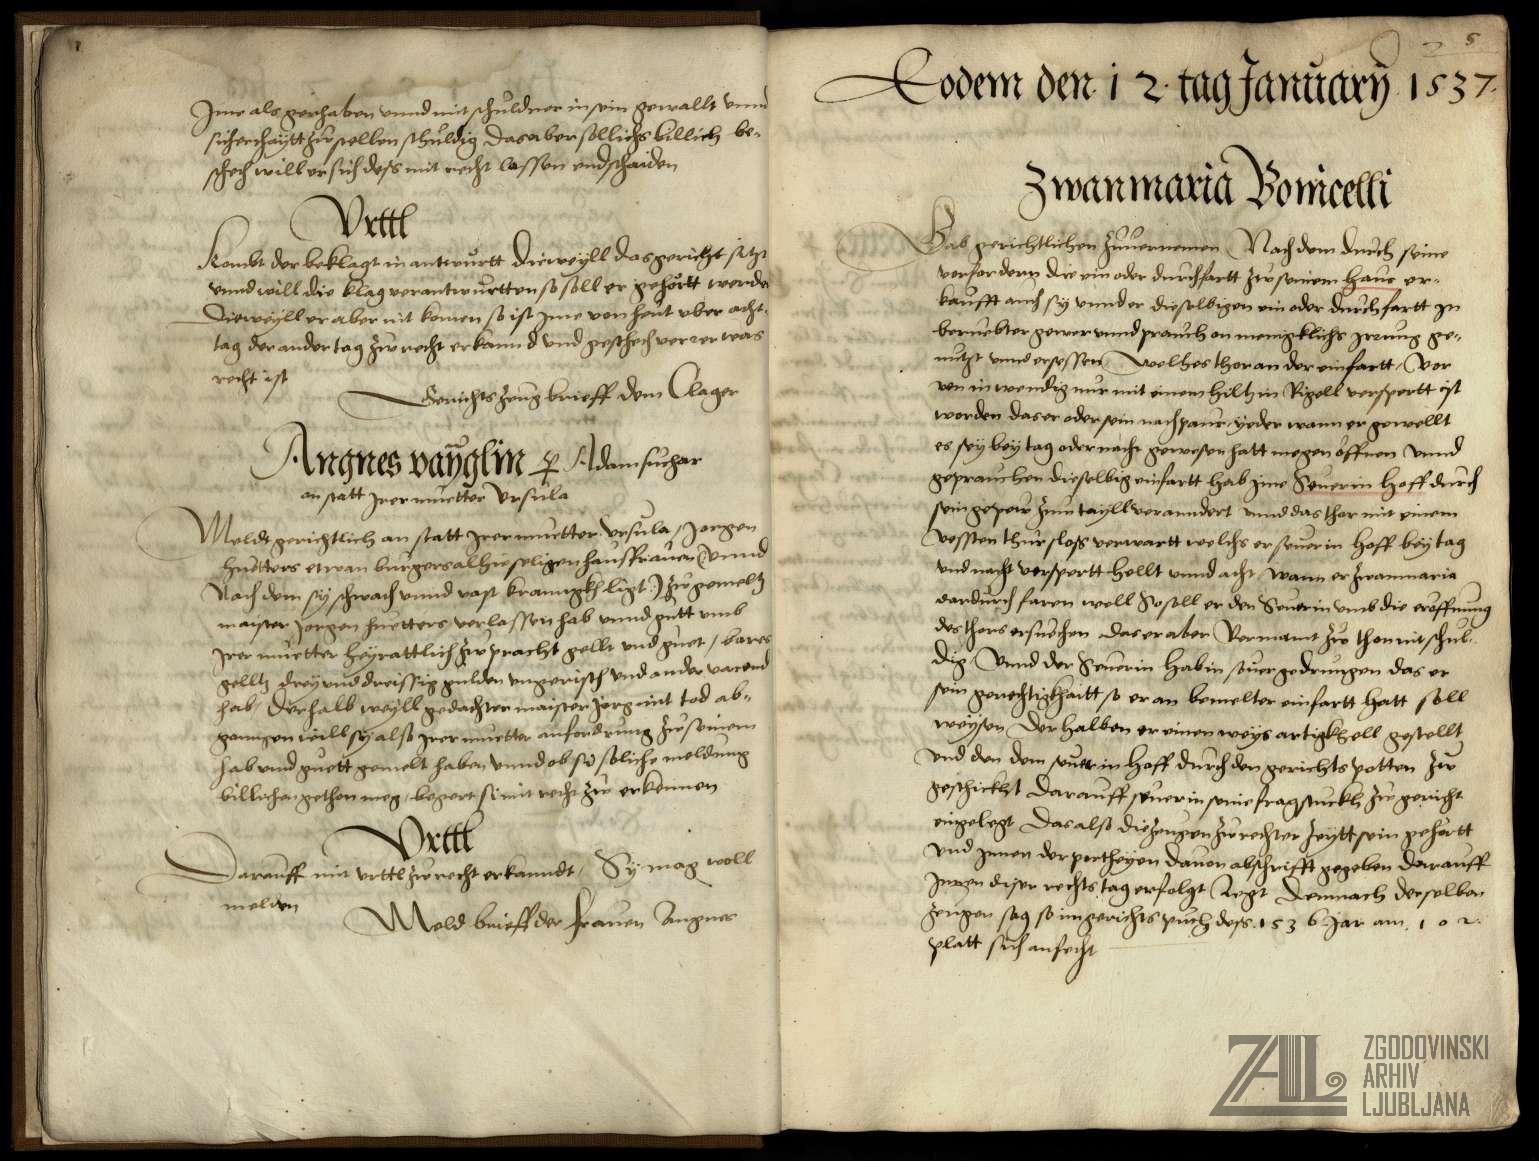 Ime als gerhaben vnnd mit schuldner in sein gewallt vnnd
sicherhaytt zw stellen schuldig das aber sollichs billich be-
schech will er sich dess mit recht lassen endschaiden
Vrttl
Kombt der beklagt in antwurtt dieweyll das gericht sitzt
vnnd will die klag verantwurtten so soll er gehörtt werden
Dieweyll er aber nit komen so ist Ime von heut vber acht
tag der ander tag zw recht erkannd vnd geschech verrer was
recht ist
Gerichts zeug brieff dem Clager
Angnes vaÿglin Adam suchar
an statt Irer muetter Vrsula
Meldt gerichtlich an statt Irer muetter Vrsula Jorgen
huetters etwan burgers alhie seligen hausfrauen (vnnd
Nach dem sy schwach vnnd vast kranngkh ligt) zu gemeltz
maister Jorgen huetters verlassen hab vnnd gutt vmb
Irer muetter heyrattlich zw pracht gellt vnd guet / bares
gelltz dreyvnddreissig gulden vngerisch vnd ander varend
hab / Derhalb weyll gedachter maister Jorg mit tod ab-
ganngen will sy also Irer muetter anfordrung zw seinem
hab vnd guett gemelt haben vnnd ob sy soliche meldung
billichen gethon meg / begert sie mit recht zw erkennen
Vrttl
Darauff mit vrttl zw recht erkanndt / Sy mag woll
melden
Meld brieff der frauen Angnes
5
Eodem den 12 tag Januarÿ 1537
Zwanmaria Bonicelli
Gab gerichtlichen zuuernemen Nach dem durch seine
verfordern die ein oder durchfartt zw seinem Haus er-
kaufft auch sy vnnd er dieselbigen ein oder durchfartt In
beruebter gewer vnnd prauch on menigklichs Irrung ge-
nutzt vnnd ersessen / Welhes thor an der einfartt / Vor
von inwendig nur mit einem hiltzin Rigell verspertt ist
worden das er oder sein nachpaur / yeder wann er gewellt
es sey bey tag oder nacht gewesen hatt mogen öffnen vnnd
geprauchen dieselbig einfartt hab Ime Seuerin Hoff durch
sein gepew zum tayll veranndert vnnd das thor mit einem
vessten thursloss verwartt welchs er seuerin Hoff bey tag
vnd nacht verspertt hellt vnnd acht / Wann er Zwanmaria
dardurch faren woll So soll er den Seuerin vmb die eröffnung
des thors ersuechen das er aber Vermaint zw thon nit schul-
dig / Vnnd der Seuerin hab in seuer gedrungen das er
sein gerechtigkhaitt so er an bemelter einfartt hatt soll
weysen Derhalben er einen weysartigkhell gestellt
vnd den dem seuerin Hoff durch den gerichts potten zw
geschickht Darauff seuerin seine fragstuckh zu gericht
eingelegt Das also die zeugen zw rechter zeytt sein gehörtt
vnd Innen der partheyen dauon abschrifft gegeben darauff
Inen diser rechts tag erfolgt legt Demnach derselben
zeugen sag so im gerichts puch dess 1536 Jar am 102
platt sich anfecht
ZAL ZGODOVINSKI
ARHIV
LJUBLJANA